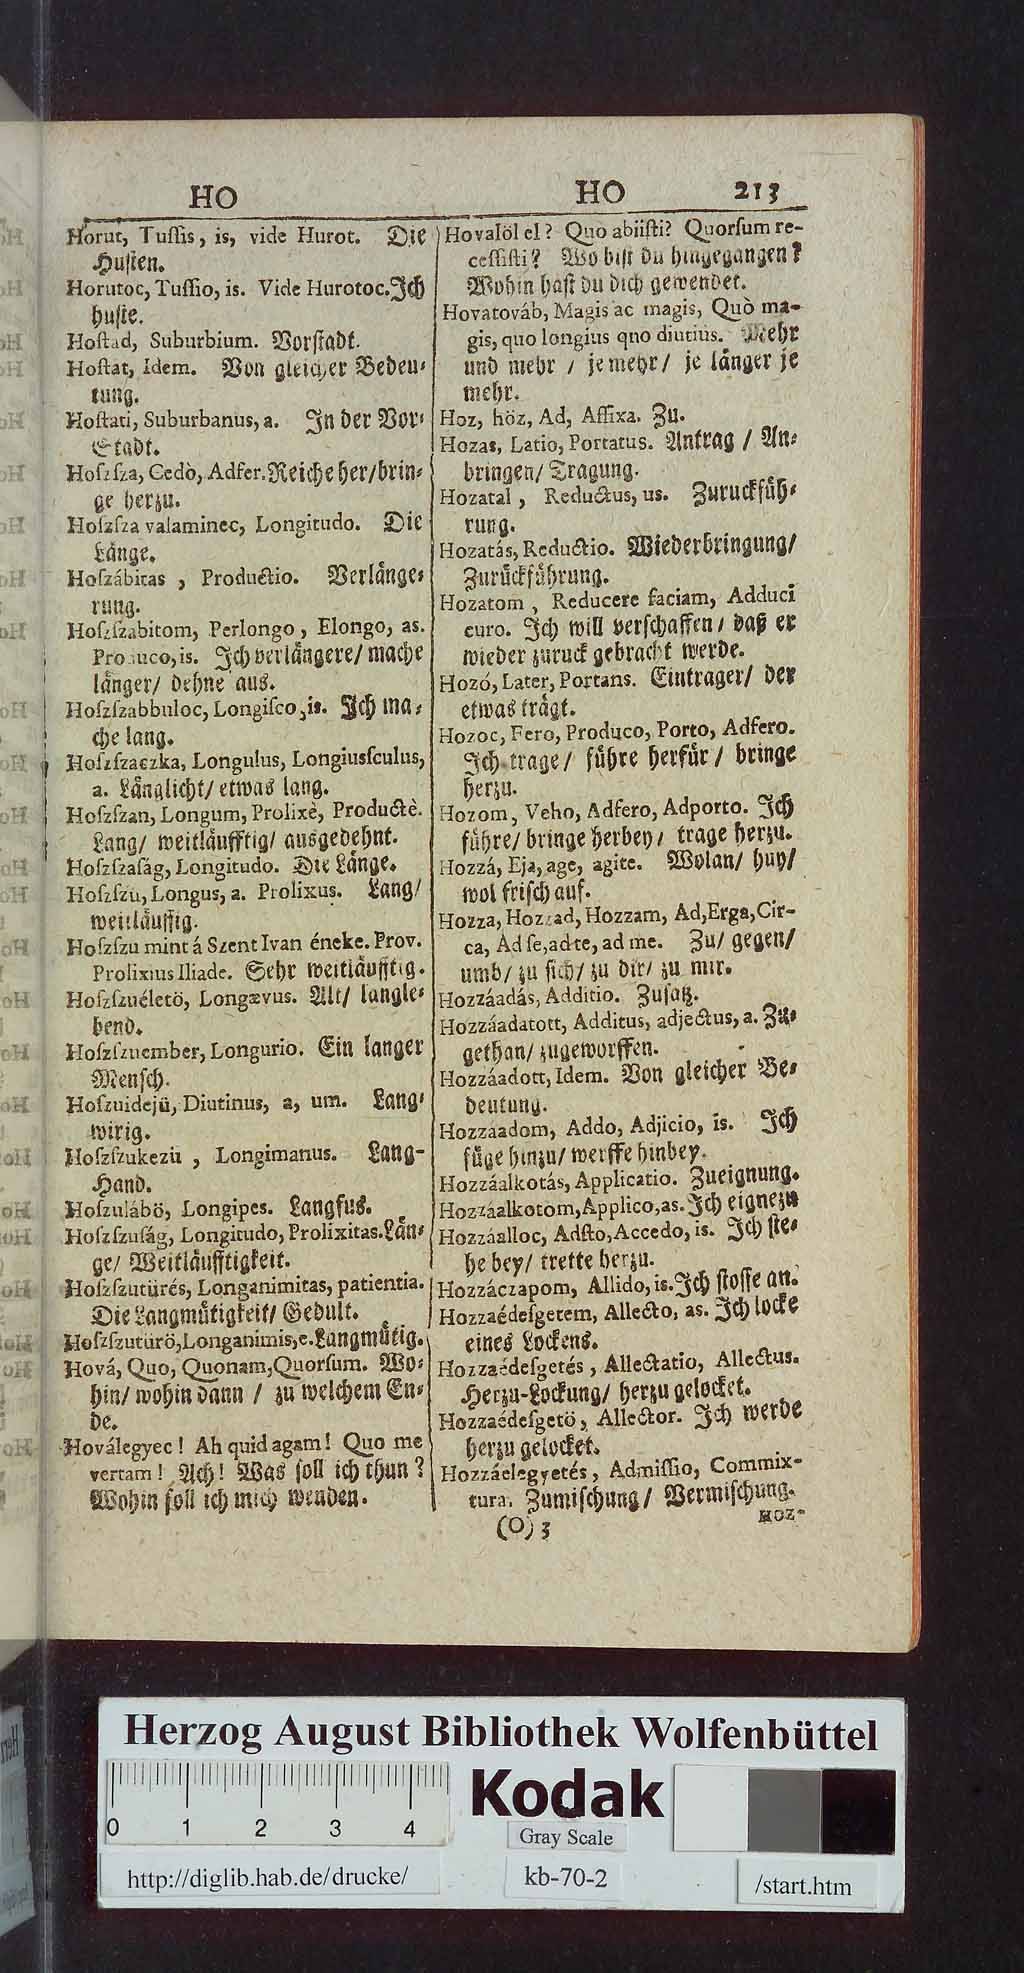 HO
Horut, Tuſſis, is, vide Hurot. Die
Huſten.
Horutoc, Tuſſio, is. Vide Hurotoc. Ich
huſte.
Hoſtad, Suburbium. Vorſtadt.
Hoſtat, Idem. Von gleicher Bedeu⸗
tung.
Hoſtati, Suburbanus, a. In der Vor⸗
Stadt.
Hoſzſza, Cedò, Adfer. Reiche her/ brin⸗
ge herzu.
Hoſzſza valaminec, Longitudo. Die
Länge.
Hoſzábitas, Productio. Verlänge⸗
rung.
Hoſzſzabitom, Perlongo, Elongo, as.
Produco, is. Ich verlängere/ mache
länger/ dehne aus.
Hoſzſzabbuloc, Longiſco, is. Ich ma⸗
che lang.
Hoſzſzaczka, Longulus, Longiusſculus,
a. Länglicht/ etwas lang.
Hoſzſzan, Longum, Prolixè, Productè.
Lang/ weitläufftig/ ausgedehnt.
Hoſzſzaſág, Longitudo. Die Länge.
Hoſzſzu, Longus, a. Prolixus. Lang/
weitläuffig.
Hoſzſzu mint á Szent Ivan éneke. Prov.
Prolixius Iliade. Sehr weitläufftig.
Hoſzſzuéletö, Longævus. Alt/ langle⸗
bend.
Hoſzſzuember, Longurio. Ein langer
Menſch.
Hoſzuidejü, Diutinus, a, um. Lang⸗
wirig.
Hoſzſzukezü, Longimanus. Lang-
Hand.
Hoſzulábö, Longipes. Langfus.
Hoſzſzuſág, Longitudo, Prolixitas. Län⸗
ge/ Weitläufftigkeit.
Hoſzſzutürés, Longanimitas, patientia.
Die Langmütigkeit/ Gedult.
Hoſzſzutürö, Longanimis, e. Langmütig.
Hová, Quo, Quonam, Quorſum. Wo⸗
hin/ wohin dann / zu welchem En⸗
de.
Hoválegyec! Ah quid agam! Quo me
vertam! Ach! Was ſoll ich thun?
Wohin ſoll ich mich wenden.
HO 213
Hovalöl el? Quo abiiſti? Quorſum re-
ceſſiſti? Wo biſt du hingegangen?
Wohin haſt du dich gewendet.
Hovatováb, Magis ac magis, Quò ma-
gis, quo longius qno diutius. Mehr
und mehr / je mehr/ je länger je
mehr.
Hoz, höz, Ad, Affixa. Zu.
Hozas, Latio, Portatus. Antrag / An⸗
bringen/ Tragung.
Hozatal, Reductus, us. Zuruckfüh⸗
rung.
Hozatás, Reductio. Wiederbringung/
Zurückführung.
Hozatom, Reducere faciam, Adduci
curo. Ich will verſchaffen/ daß er
wieder zuruck gebracht werde.
Hozó, Later, Portans. Eintrager/ der
etwas trägt.
Hozoc, Fero, Produco, Porto, Adfero.
Ich trage/ führe herfür/ bringe
herzu.
Hozom, Veho, Adfero, Adporto. Ich
führe/ bringe herbey/ trage herzu.
Hozzá, Eja, age, agite. Wolan/ huy/
wol friſch auf.
Hozza, Hozzad, Hozzam, Ad, Erga, Cir-
ca, Ad ſe, ad te, ad me. Zu/ gegen/
umb/ zu ſich/ zu dir/ zu mir.
Hozzáadás, Additio. Zuſatz.
Hozzáadatott, Additus, adjectus, a. Zu⸗
gethan/ zugeworffen.
Hozzáadott, Idem. Von gleicher Be⸗
deutung.
Hozzáadom, Addo, Adjicio, is. Ich
füge hinzu/ werffe hinbey.
Hozzáalkotás, Applicatio. Zueignung.
Hozzáalkotom, Applico, as. Ich eigne zu
Hozzáalloc, Adſto, Accedo, is. Ich ſte⸗
he bey/ trette herzu.
Hozzáczapom, Allido, is. Ich ſtoſſe an.
Hozzaédeſgetem, Allecto, as. Ich locke
eines Lockens.
Hozzaédeſgetés, Allectatio, Allectus.
Herzu-Lockung/ herzu gelocket.
Hozzaédeſgetö, Allector. Ich werde
herzu gelocket.
Hozzáelegyetés, Admiſſio, Commix-
tura. Zumiſchung/ Vermiſchung.
(O) 3
HOZ-
Herzog August Bibliothek Wolfenbüttel
Kodak
0 1 2 3 4
Gray Scale
http://diglib.hab.de/drucke/
kb-70-2
/start.htm